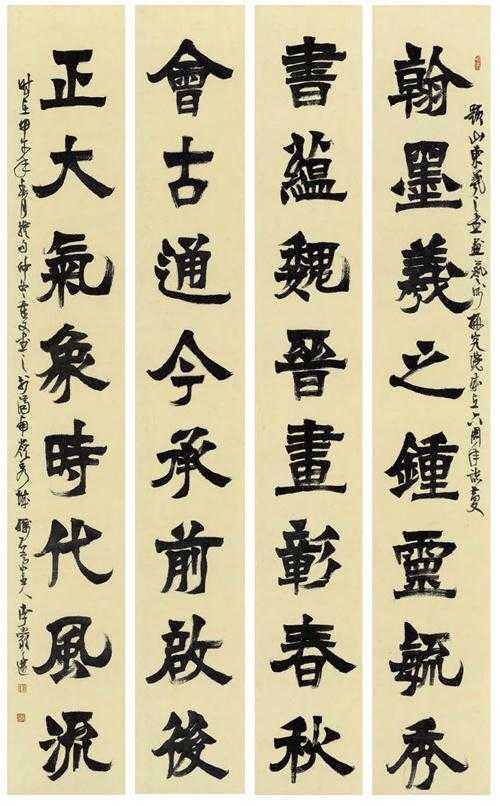 題山東羲之書畫藝術研究院成立六周年誌慶
翰墨羲之鍾靈毓秀
書蘊魏晉畫彰春秋
會古通今承前啟後
正大氣象時代風流
時在甲午年春月撰句仲冬